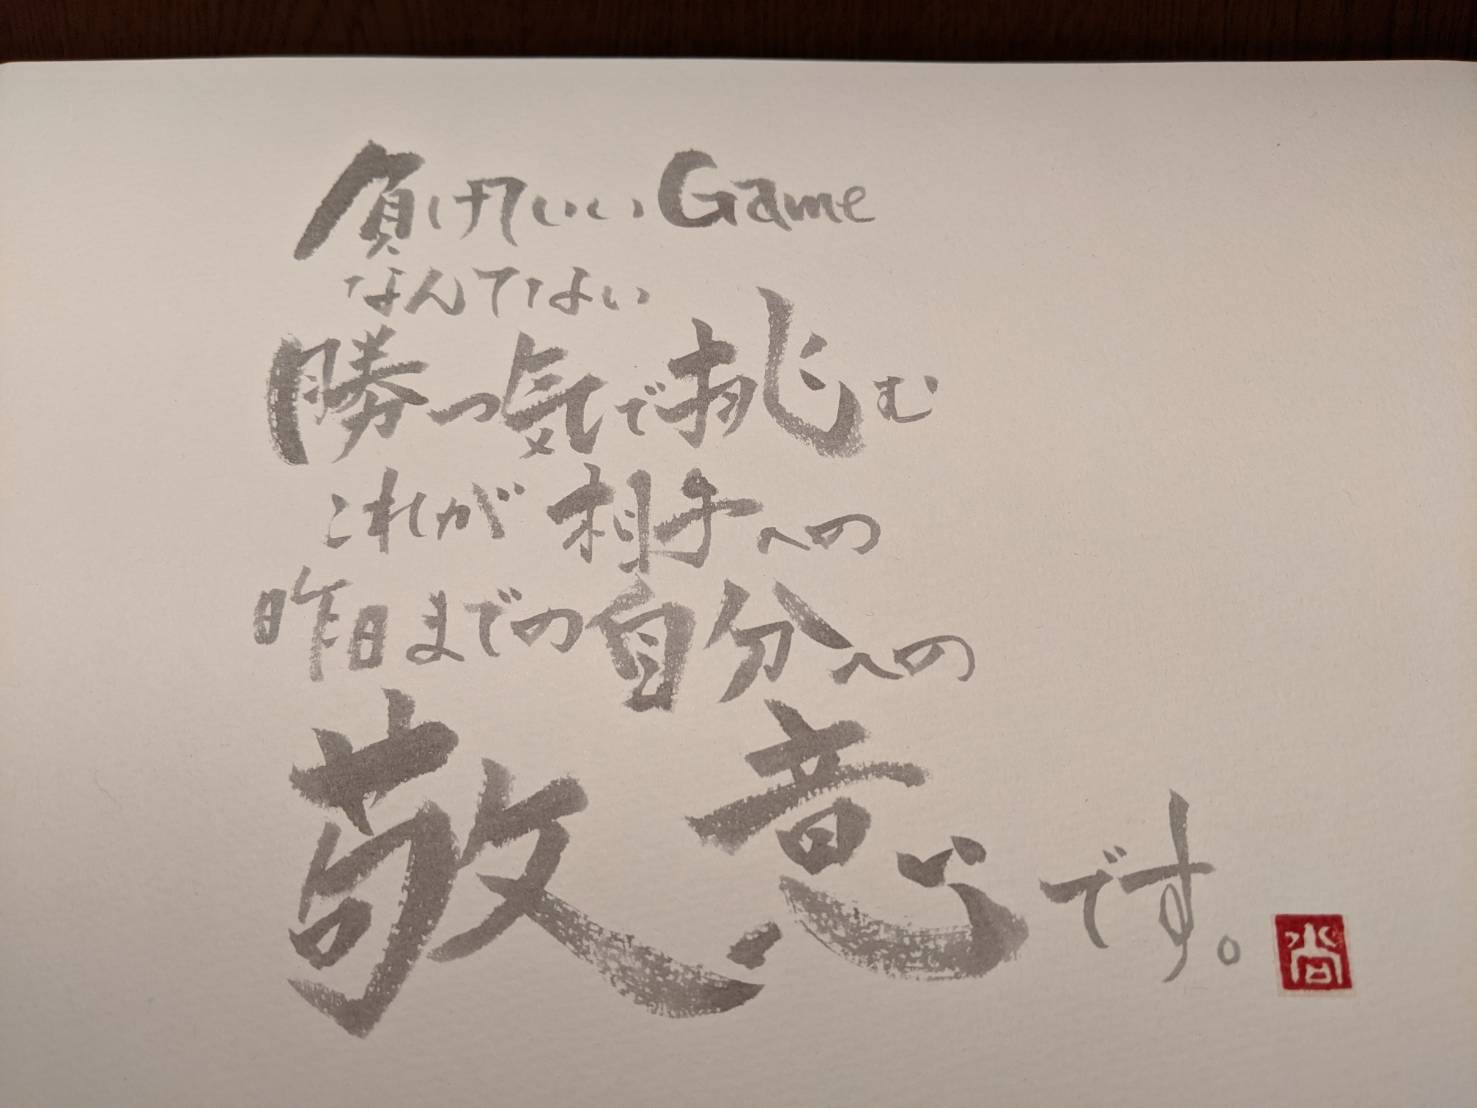 負けていいGame
なんてない
勝つ気で挑む
これが相手への
昨日までの自分への
敬意です。
尚